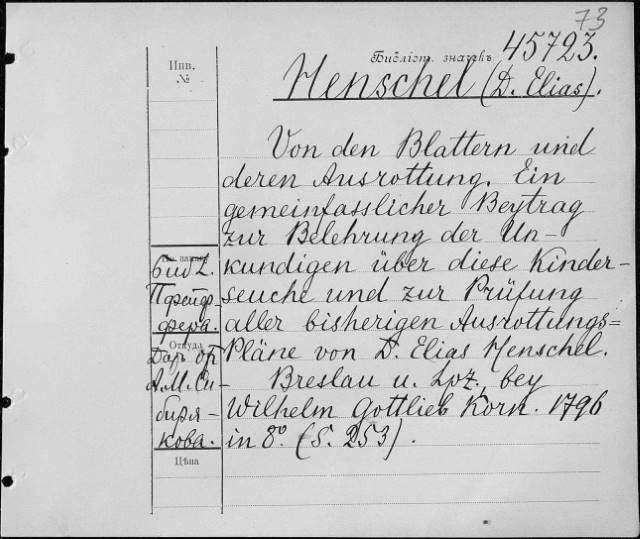 73
Библіот. значекъ. 45723.
Henschel (D. Elias).
Инв.
№
Von den Blattern und
deren Ausrottung. Ein
gemeinfasslicher Beytrag
zur Belehrung der Un-
kundigen über diese Kinder-
seuche und zur Prüfung
aller bisherigen Ausrottungs=
Pläne von D. Elias Henschel.
Breslau u. Lpz., bey
Wilhelm Gottlieb Korn. 1796
in 8º. (S. 253).
Библ.
Пфейф-
фера.
Откуда
Даръ от
А. М. Си-
биря-
кова.
Цѣна